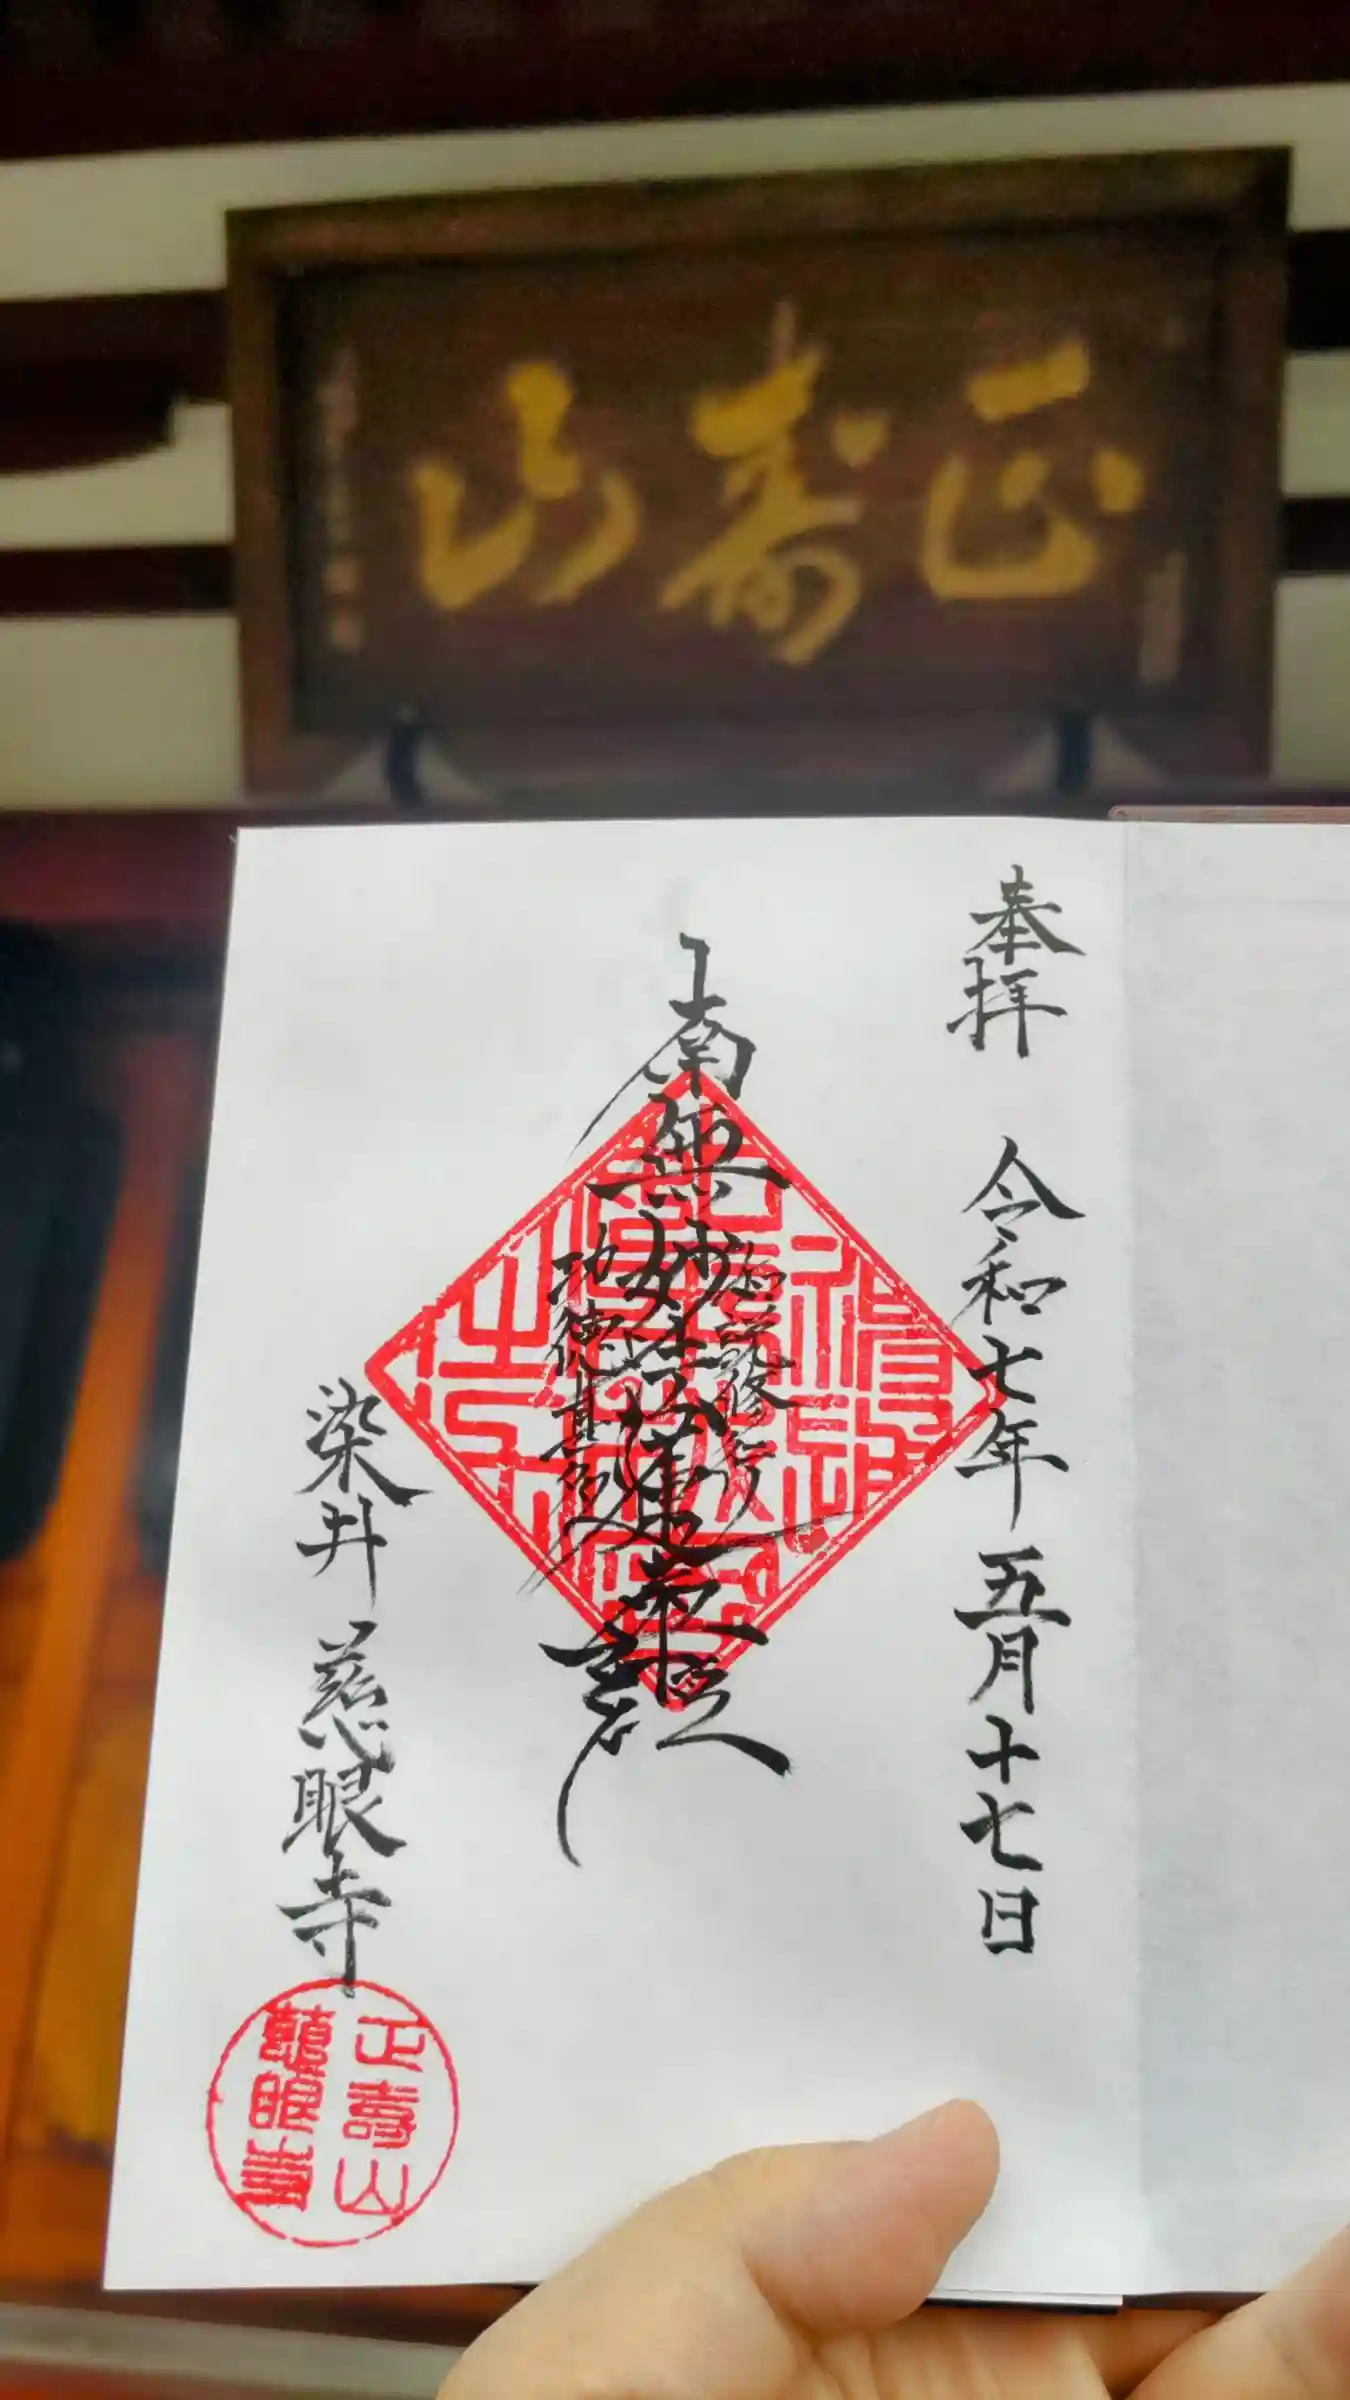 正壽山
奉拝 令和七年 五月十七日
南無妙法蓮華経
如説修行
功徳甚多
染井 慈眼寺
正壽山
慈眼寺